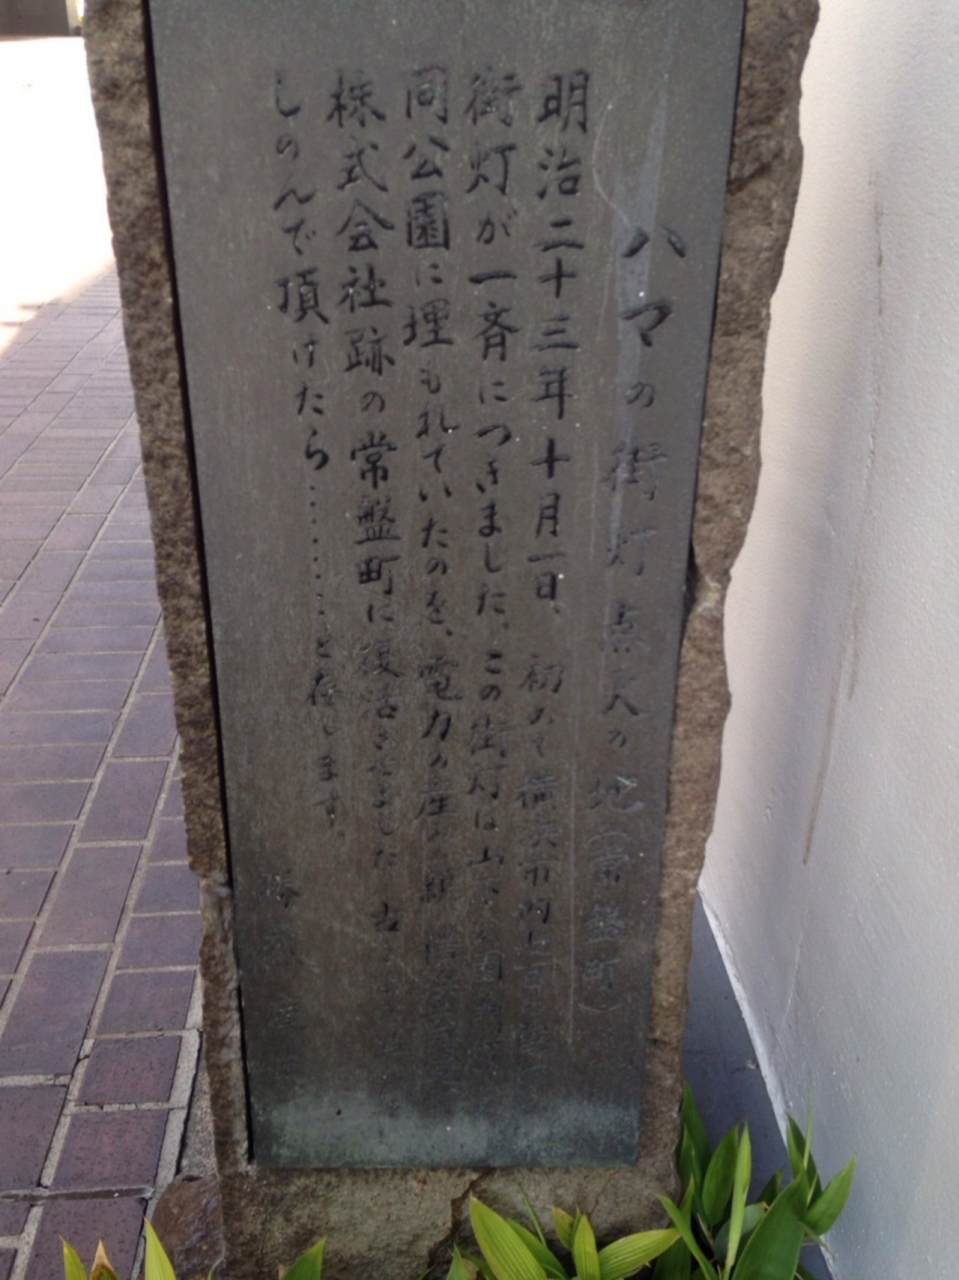 ハマの街灯点火の地(常盤町)
明治二十三年十月一日、初めて横浜市内七百
街灯が一斉につきました。この街灯は山下公園
同公園に埋もれていたのを、電力の産みの親 横浜
株式会社跡の常盤町に復活させました 古
しのんで頂けたら………と存じます。